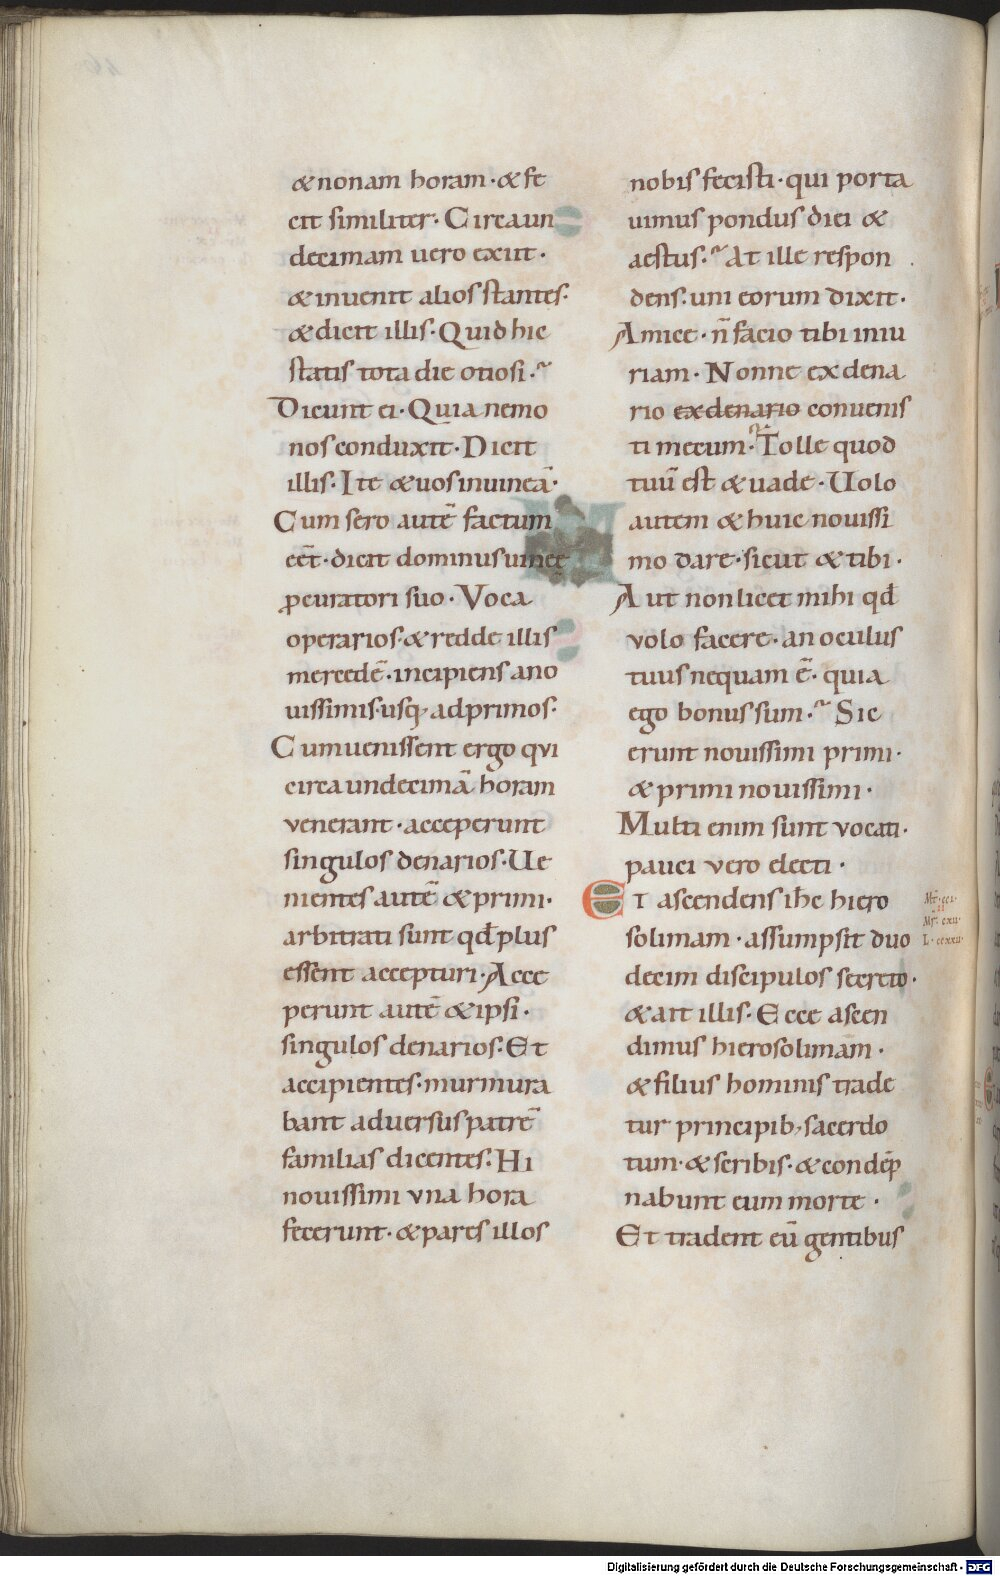 & nonam horam · & fe
cit similiter · Circa un
decimam uero exiit ·
& inuenit alios stantes ·
& dicit illis · Quid hic
statis tota die otiosi ·
Dicunt ei · Quia nemo
nos conduxit · Dicit
illis · Ite & uos in uineā ·
Cum sero autē factum
eēt · dicit dominus uineę
ꝓcuratori suo · Voca
operarios · & redde illis
mercedē · incipiens a no
uissimis · usq; ad primos ·
Cum uenissent ergo qvi
circa undecimā horam
venerant · acceperunt
singulos denarios · Ue
nientes autē & primi ·
arbitrati sunt qđ plus
essent accepturi · Acce
perunt autē & ipsi ·
singulos denarios · Et
accipientes · murmura
bant adversus patrē
familias dicentes · Hi
nouissimi vna hora
fecerunt · & pares illos
nobis fecisti · qui porta
uimus pondus diei &
aestus · At ille respon
dens · uni eorum dixit ·
Amice · n̄ facio tibi iniu
riam · Nonne ex dena
rio ex denario convenis
ti mecum · Tolle quod
tuū est & uade · Uolo
autem & huic novissi
mo dare · sicut & tibi ·
Aut non licet mihi qđ
volo facere · an oculus
tuus nequam ē · quia
ego bonus sum · Sic
erunt novissimi primi ·
& primi novissimi ·
Multi enim sunt vocati ·
pauci vero electi ·
Et ascendens ihc hiero
solimam · assumpsit duo
decim discipulos secreto ·
& ait illis · Ecce ascen
dimus hierosolimam ·
& filius hominis trade
tur principib; sacerdo
tum · & scribis · & condēp
nabunt eum morte ·
Et tradent eū gentibus
Mt · cci ·
ii
Mr · cxii ·
L · ccxxii ·
Digitalisierung gefördert durch die Deutsche Forschungsgemeinschaft - DFG